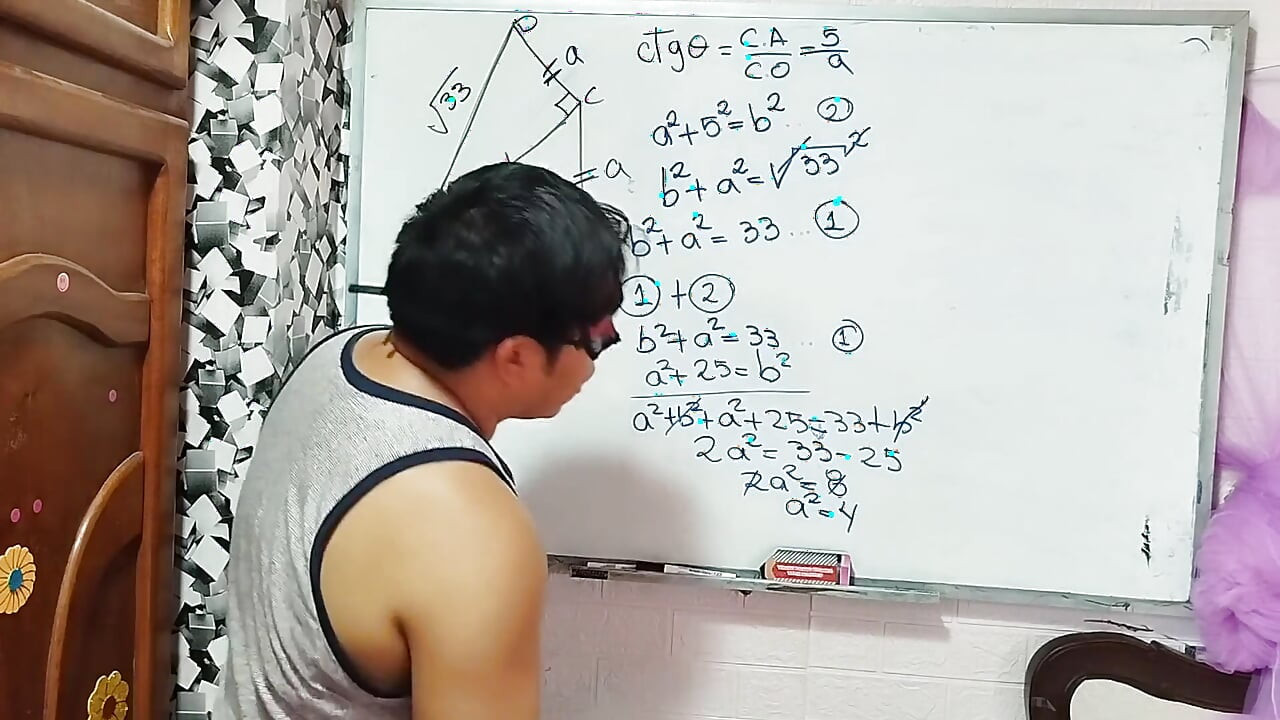 D
a
√33
C
a
ctgθ = C.A/CO = 5/a
a²+5²=b² .. ②
b²+a²=√33²
b²+a²=33 ... ①
①+②
b²+a²=33 .. ①
a²+25=b²
a²+b²+a²+25=33+b²
2a²=33-25
2a²=8
a²=4